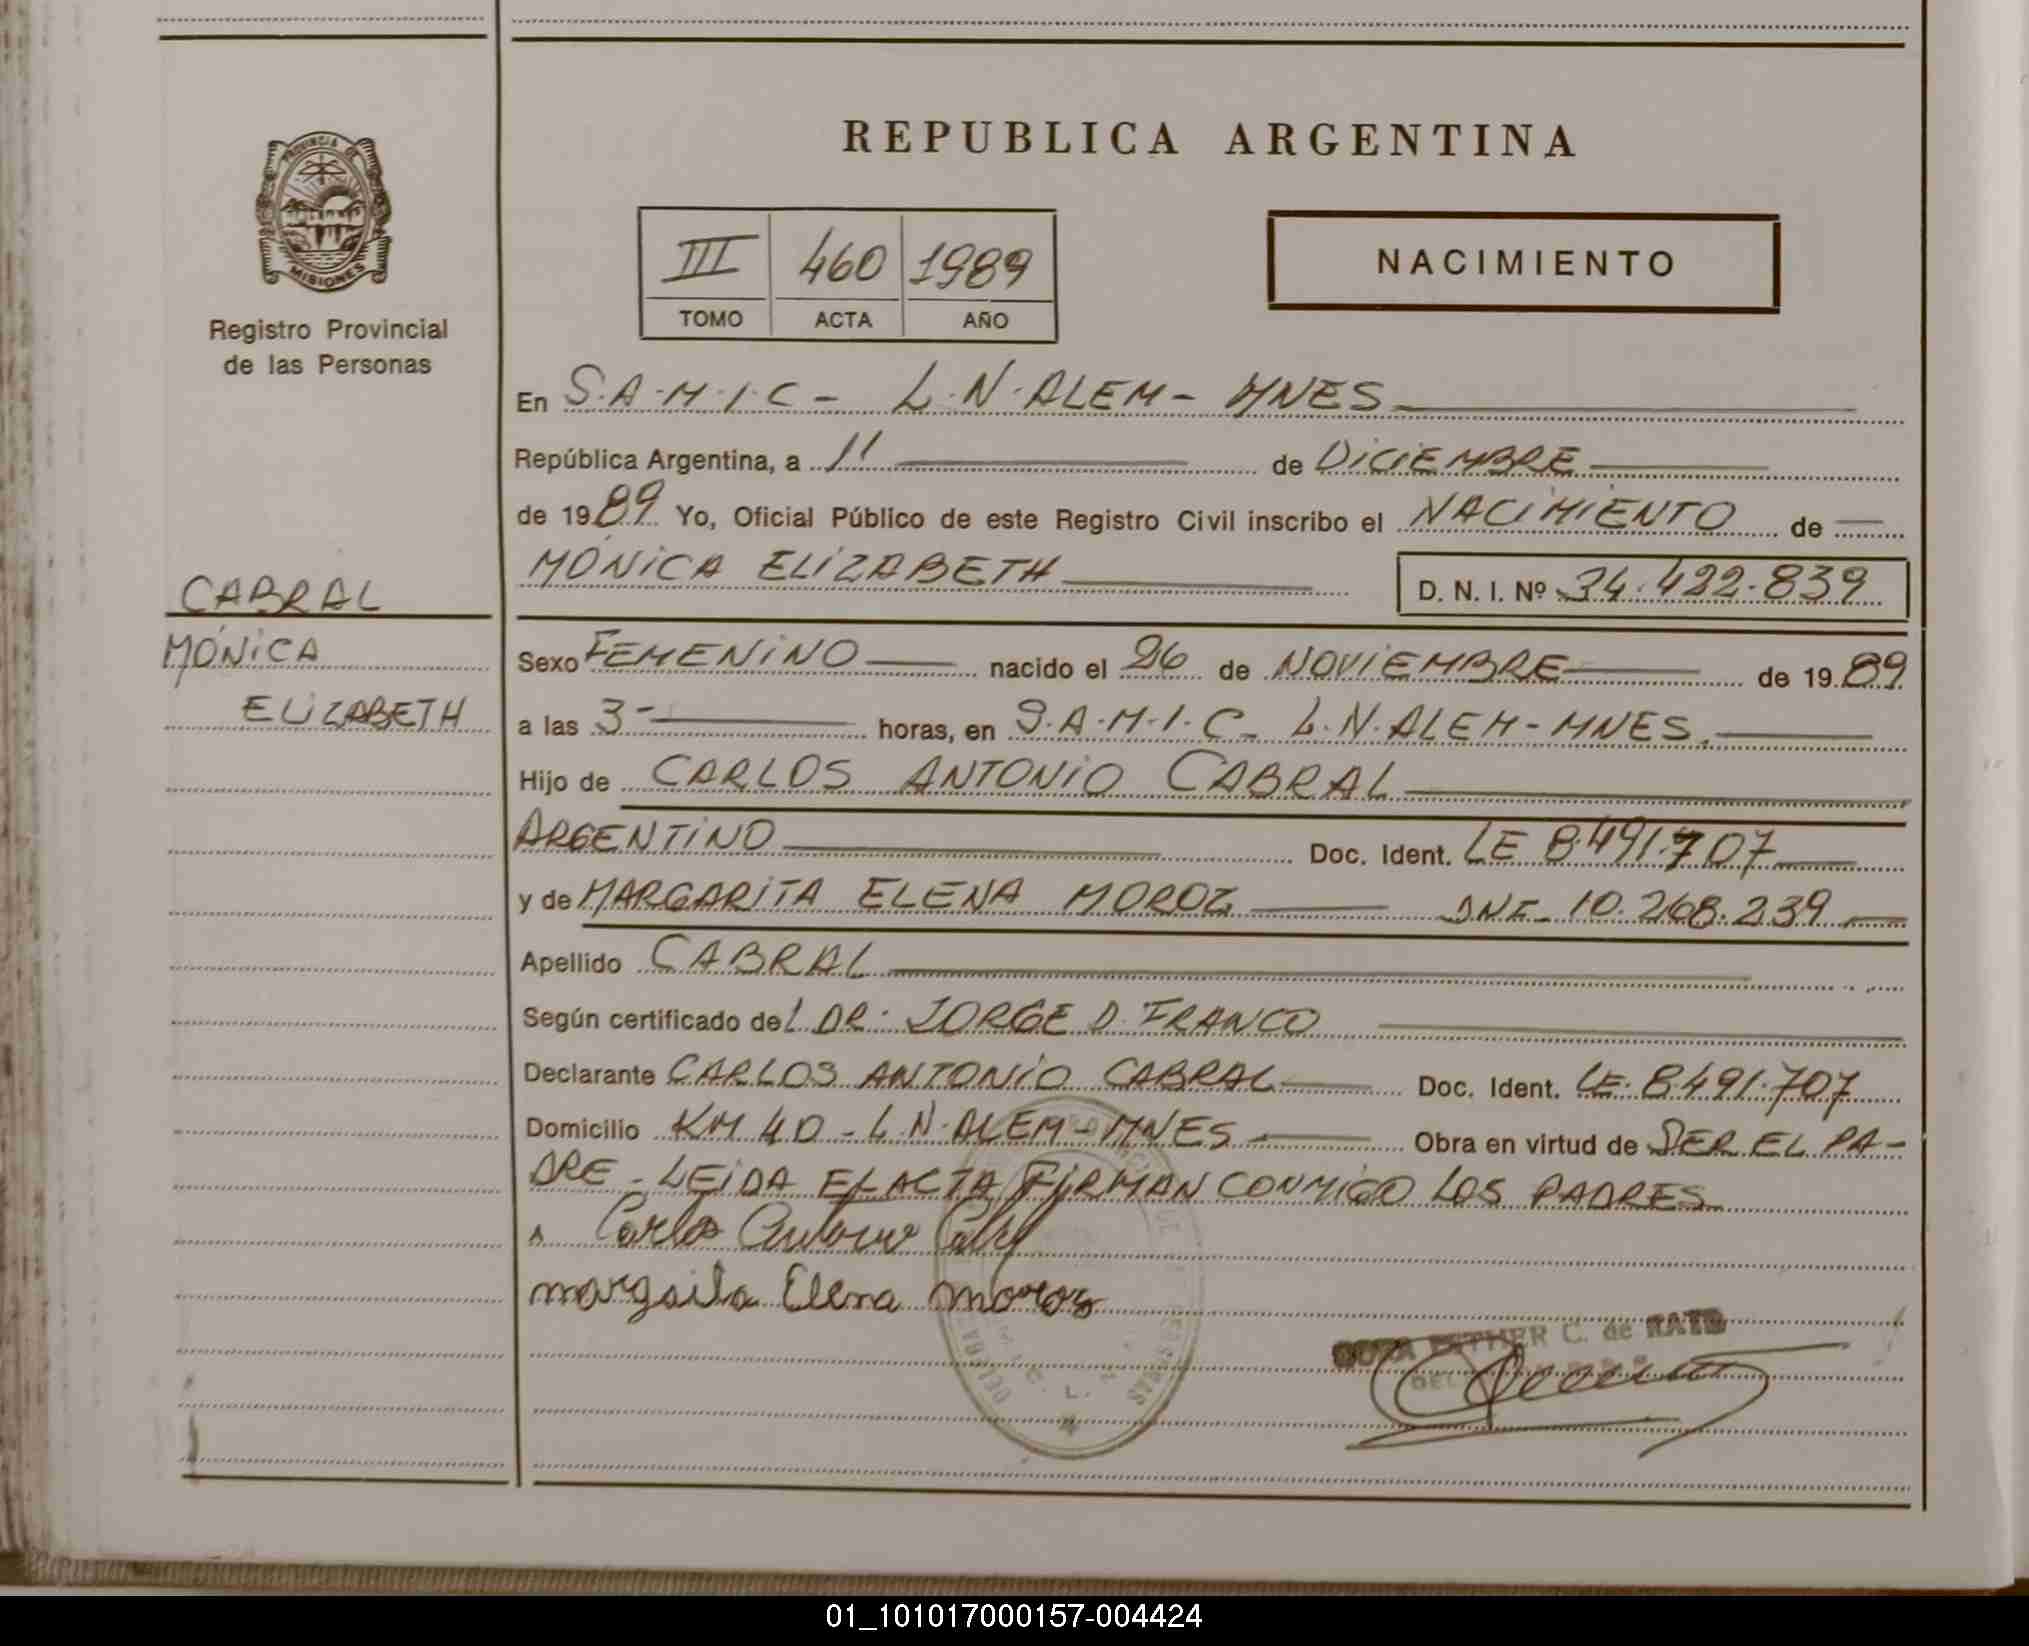 REPUBLICA ARGENTINA
PROVINCIA DE
MISIONES
Registro Provincial
de las Personas
III 460 1989
TOMO ACTA AÑO
NACIMIENTO
En S.A.M.I.C - L.N.ALEM - MNES
República Argentina, a 11 de DICIEMBRE
de 1989 Yo, Oficial Público de este Registro Civil inscribo el NACIMIENTO de
MÓNICA ELIZABETH D. N. I. Nº 34.422.839
CABRAL
MÓNICA
ELIZABETH
Sexo FEMENINO nacido el 26 de NOVIEMBRE de 1989
a las 3- horas, en S.A.M.I.C - L.N.ALEM - MNES.
Hijo de CARLOS ANTONIO CABRAL
ARGENTINO Doc. Ident. LE 8.491.707
y de MARGARITA ELENA MOROZ DNI - 10.268.239
Apellido CABRAL
Según certificado del DR. JORGE D. FRANCO
Declarante CARLOS ANTONIO CABRAL Doc. Ident. LE. 8.491.707
Domicilio KM 40 - L.N.ALEM - MNES Obra en virtud de SER EL PA-
DRE - LEIDA EL ACTA FIRMAN CONMIGO LOS PADRES
Carlos Antonio
margarita Elena Moroz
ESTHER C. de
01_101017000157-004424